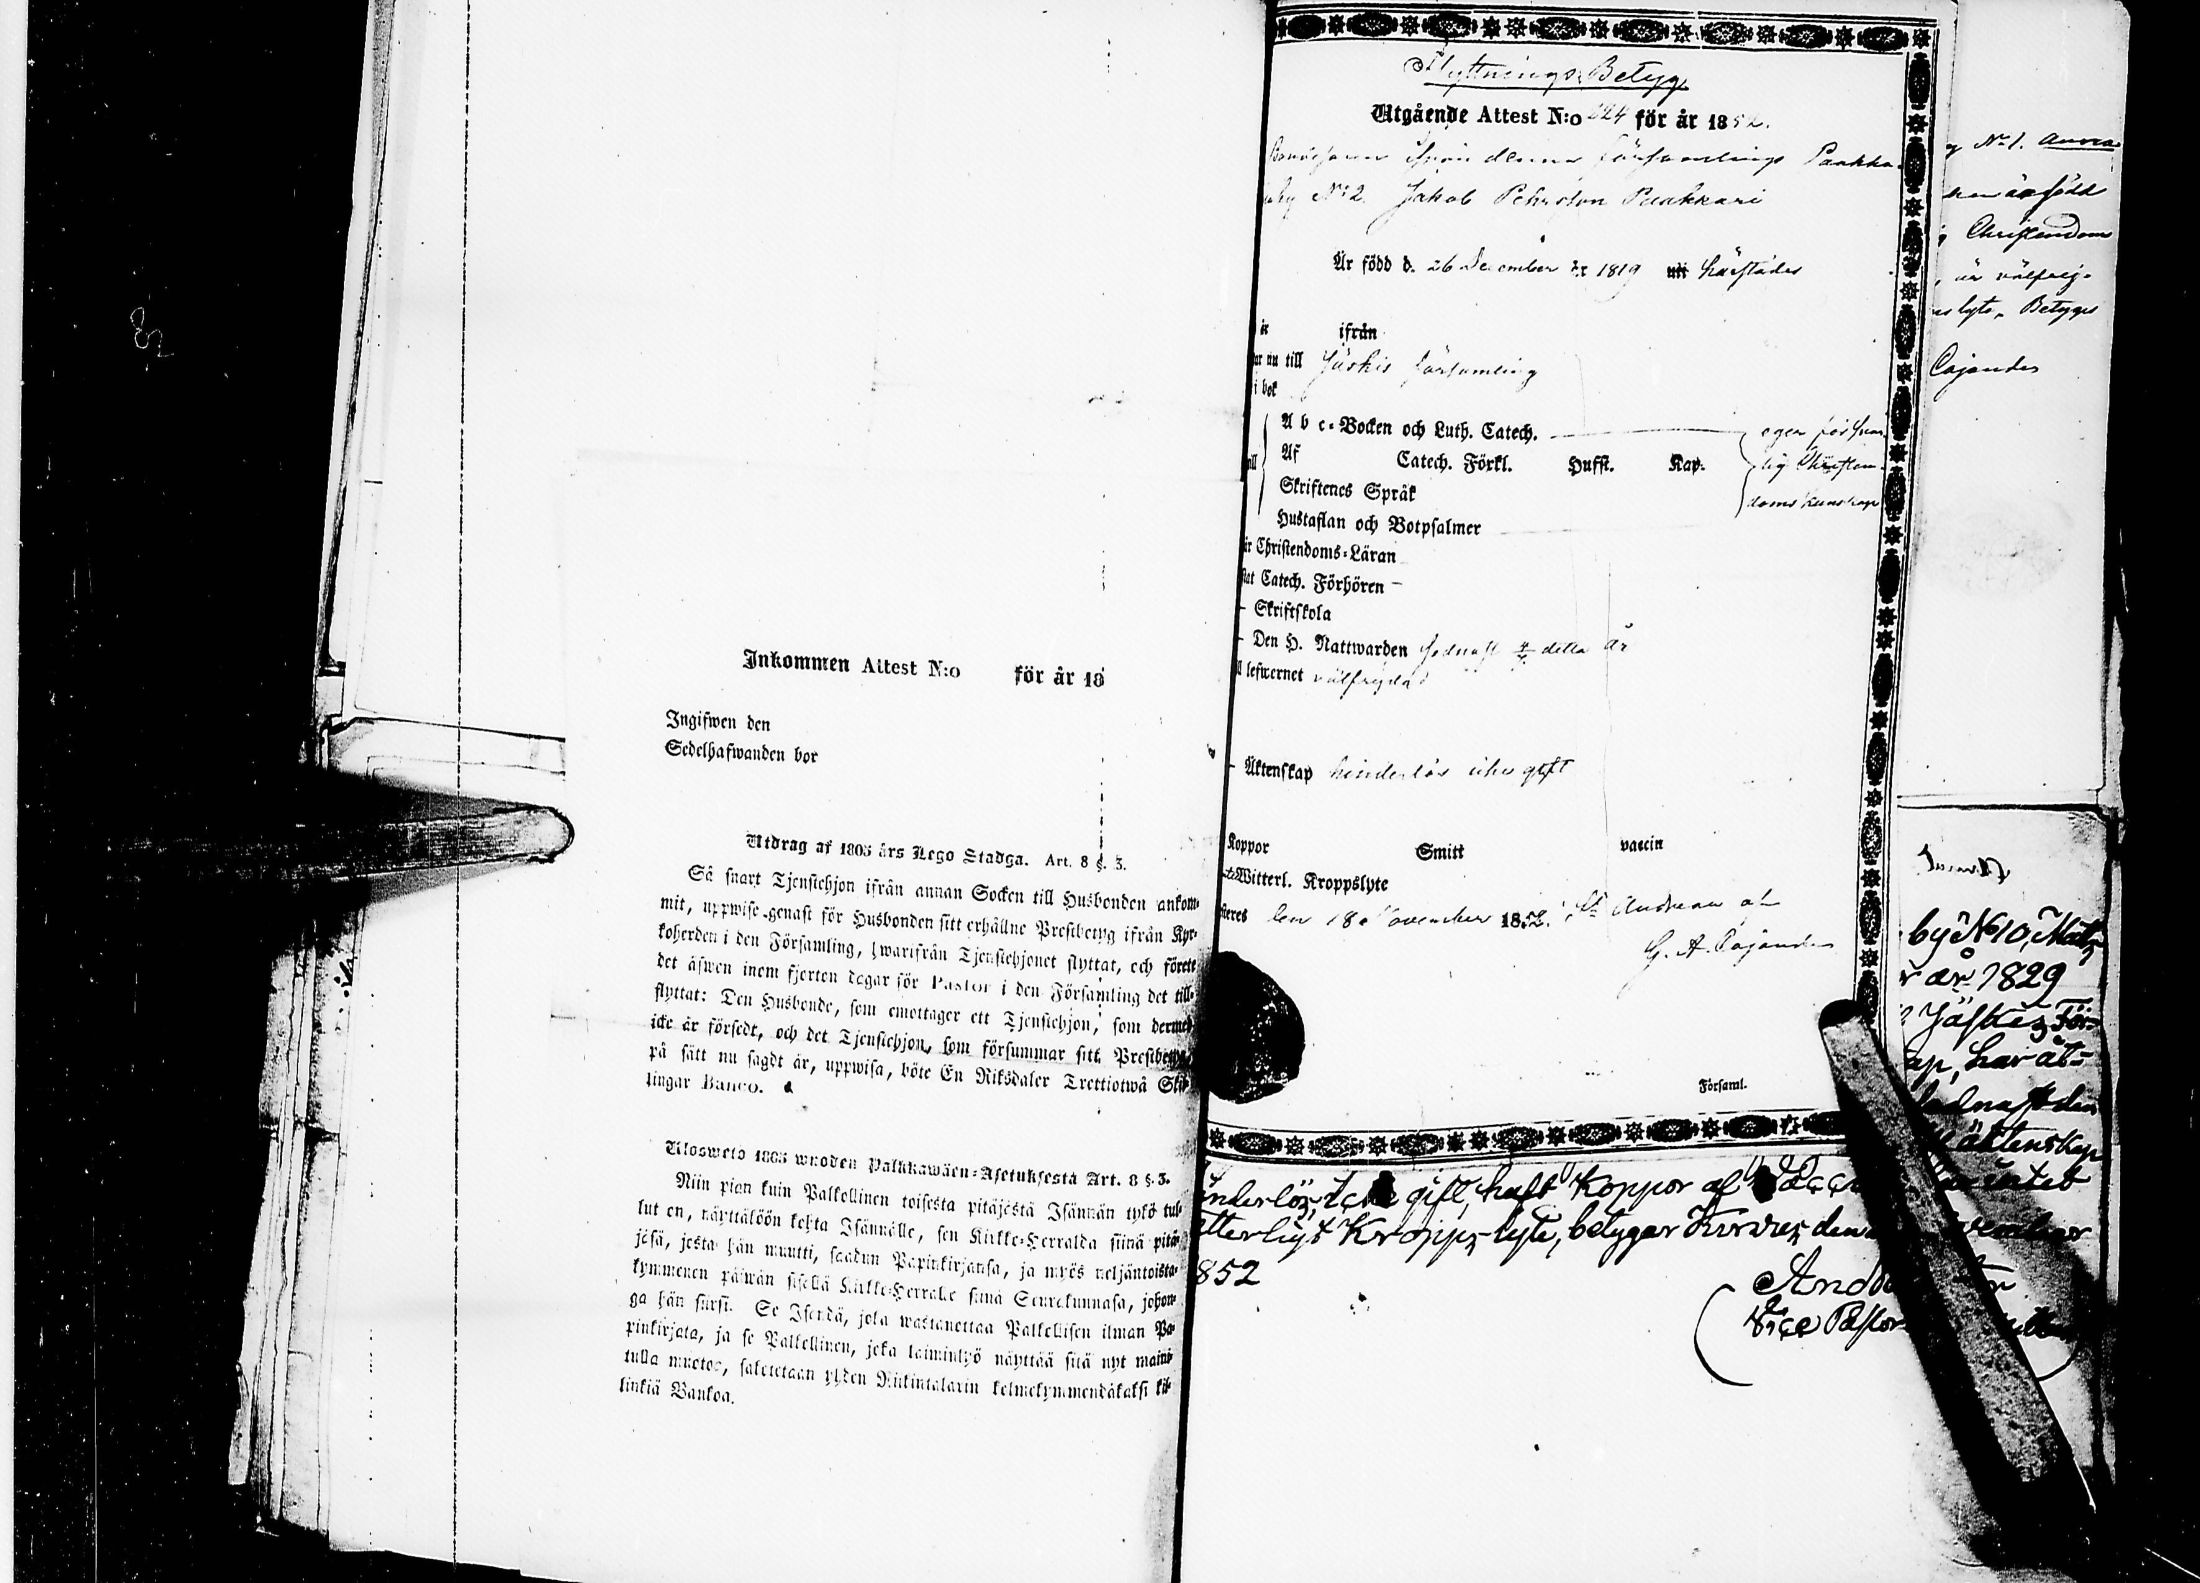 Inkommen Attest N:o för år 18
Ingifwen den
Sedelhafwanden bor
Utdrag af 1805 års Lego Stadga. Art. 8 §. 3.
Så snart Tjenstehjon ifrån annan Socken till Husbonden ankom-
mit, uppwise genast för Husbonden sitt erhållne Prestbetyg ifrån Kyr-
koherden i den Församling, hwarifrån Tjenstehjonet flyttat, och förete
det äfwen inom fjorton dagar för Pastor i den Församling det till-
flyttat: Den Husbonde, som emottager ett Tjenstehjon, som dermed
icke är försedt, och det Tjenstehjon, som försummar sitt Prestbetyg,
på sätt nu sagdt är, uppwisa, böte En Riksdaler Trettiotwå Skil-
lingar Banco.
Ulosweto 1805 wuoden Palkkawäen-Asetuksesta Art. 8 §. 3.
Niin pian kuin Palkollinen toisesta pitäjestä Isännän tykö tul-
lut on, näyttäköön kohta Isännälle, sen Kirkko-Herralda siinä pitä-
jäsä, josta hän muutti, saadun Papinkirjansa, ja myös neljäntoista-
kymmenen päiwän sisellä Kirkko-Herralle siinä Seurakunnasa, johon-
ga hän siirsi. Se Isändä, jola wastanottaa Palkollisen ilman Pa-
pinkirjata, ja se Palkollinen, joka laiminlyö näyttää sitä nyt maini-
tulla muotoa, saketetaan yhden Riikintalarin kolmekymmendäkaksi kil-
linkiä Bankoa.
Flyttnings Betyg
Utgående Attest N:o 224 för år 1852.
Bondesonen ifrån denna församlings Paakka-
by No 2. Jakob Pehrsson Paakkari
Är född d. 26 December år 1819 uti härstädes
år ifrån
ar nu till Jäskis församling
i bok
A b c-Bocken och Luth. Catech. eger förswar-
Af Catech. Förkl. Husft. Kap. lig Christen-
Skriftenes Språk domskunskap
Hustaflan och Botpsalmer
är Christendoms-Läran
stat Catech. Förhören
- Skriftskola
- Den H. Nattwarden sednast 4/7 detta år
ll lefwernet välfrejdad
- Äktenskap hinderlös icke gift
Koppor Smitt vaccin
Witterl. Kroppslyte
steres den 18 November 1852. St Andreae af
G. A. Cajander
Församl.
g No 1. Anna
han är född
Christendom
är välfrej-
s lyte, Betyges
Cajander
by No 10, Matz
r år 1829
Jäskis För-
ap, har åt-
sednast den
äktenskap
inderlös, icke gift, haft Koppor af Vacc
etterligt Kropps-lyte, betygar Kirvus den November
852
Vice Pastor